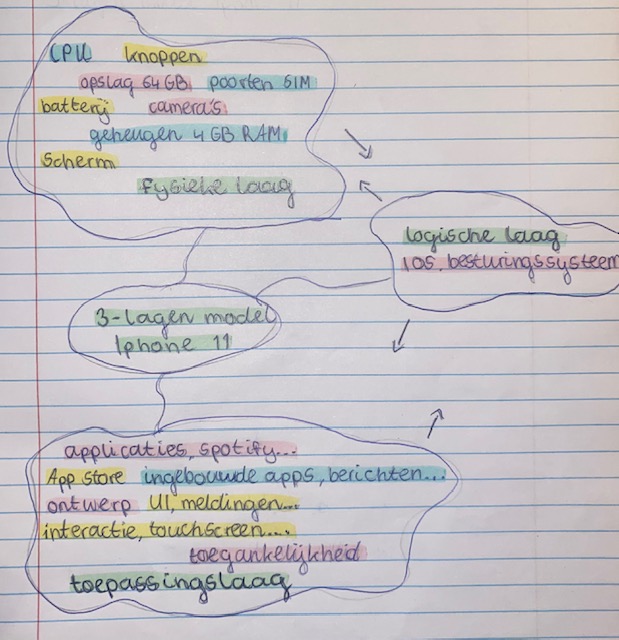 CPU knoppen
opslag 64GB poorten SIM
batterij camera's
geheugen 4 GB RAM
Scherm
fysieke laag
logische laag
IOS, besturingssysteem
3-lagen model
Iphone 11
applicaties, spotify...
App store ingebouwde apps, berichten...
ontwerp UI, meldingen...
interactie, touchscreen....
toegankelijkheid
toepassingslaag